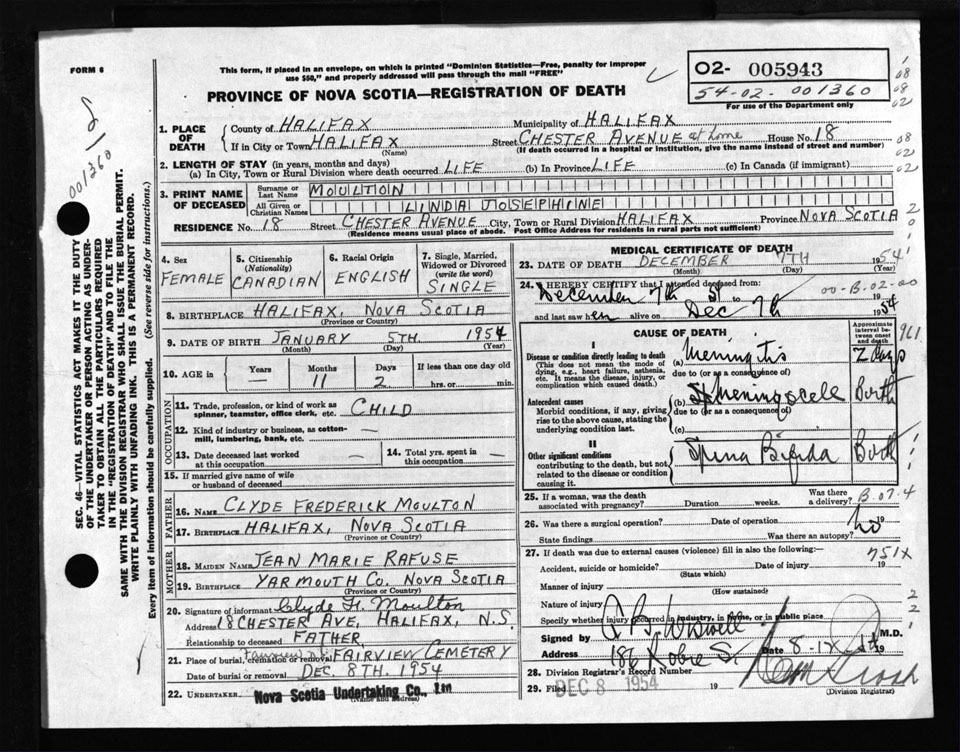 FORM 6
This form, if placed in an envelope, on which is printed "Dominion Statistics—Free, penalty for improper
use $50," and properly addressed will pass through the mail "FREE"
PROVINCE OF NOVA SCOTIA—REGISTRATION OF DEATH
02- 005943
54-02-001360
For use of the Department only
001360
SEC. 46—VITAL STATISTICS ACT MAKES IT THE DUTY
OF THE UNDERTAKER OR PERSON ACTING AS UNDER-
TAKER TO OBTAIN ALL THE PARTICULARS REQUIRED
IN THE "REGISTRATION OF DEATH" AND TO FILE THE
SAME WITH THE DIVISION REGISTRAR WHO SHALL ISSUE THE BURIAL PERMIT.
WRITE PLAINLY WITH UNFADING INK. THIS IS A PERMANENT RECORD.
Every item of information should be carefully supplied. (See reverse side for instructions.)
1. PLACE OF DEATH
County of HALIFAX Municipality of HALIFAX
If in City or Town HALIFAX Street CHESTER AVENUE at home House No. 18
(Name) (If death occurred in a hospital or institution, give the name instead of street and number)
2. LENGTH OF STAY (in years, months and days)
(a) In City, Town or Rural Division where death occurred LIFE (b) In Province LIFE (c) In Canada (if immigrant)
3. PRINT NAME OF DECEASED
Surname or Last Name MOULTON
All Given or Christian Names LINDA JOSEPHINE
RESIDENCE No. 18 Street CHESTER AVENUE City, Town or Rural Division HALIFAX Province NOVA SCOTIA
(Residence means usual place of abode. Post Office Address for residents in rural parts not sufficient)
4. Sex FEMALE
5. Citizenship (Nationality) CANADIAN
6. Racial Origin ENGLISH
7. Single, Married, Widowed or Divorced (write the word) SINGLE
8. BIRTHPLACE HALIFAX, NOVA SCOTIA
(Province or Country)
9. DATE OF BIRTH JANUARY 5TH. 1954
(Month) (Day) (Year)
10. AGE in Years — Months 11 Days 2 If less than one day old hrs. or min.
OCCUPATION
11. Trade, profession, or kind of work as spinner, teamster, office clerk, etc. CHILD
12. Kind of industry or business, as cotton-mill, lumbering, bank, etc. —
13. Date deceased last worked at this occupation —
14. Total yrs. spent in this occupation —
15. If married give name of wife or husband of deceased
FATHER
16. NAME CLYDE FREDERICK MOULTON
17. BIRTHPLACE HALIFAX, NOVA SCOTIA
(Province or Country)
MOTHER
18. MAIDEN NAME JEAN MARIE RAFUSE
19. BIRTHPLACE YARMOUTH CO. NOVA SCOTIA
(Province or Country)
20. Signature of informant Clyde F. Moulton
Address 18 CHESTER AVE, HALIFAX, N.S.
Relationship to deceased FATHER
21. Place of burial, cremation or removal FAIRVIEW CEMETERY
Date of burial or removal DEC. 8TH. 1954
22. UNDERTAKER Nova Scotia Undertaking Co., Ltd
MEDICAL CERTIFICATE OF DEATH
23. DATE OF DEATH DECEMBER 7TH 1954
(Month) (Day) (Year)
24. I HEREBY CERTIFY that I attended deceased from:
December 7th 54 to Dec 7th 1954
00-B.02-00
and last saw her alive on
CAUSE OF DEATH
Approximate interval between onset and death
I
Disease or condition directly leading to death
(This does not mean the mode of dying, e.g., heart failure, asthenia, etc. It means the disease, injury, or complication which caused death.)
(a) Meningitis 2 days
due to (or as a consequence of)
Antecedent causes
Morbid conditions, if any, giving rise to the above cause, stating the underlying condition last.
(b) Meningocele Birth
due to (or as a consequence of)
(c)
II
Other significant conditions
contributing to the death, but not related to the disease or condition causing it.
Spina Bifida Birth
25. If a woman, was the death associated with pregnancy? Duration weeks. Was there a delivery? B.07.4
26. Was there a surgical operation? Date of operation 19
State findings Was there an autopsy? no
27. If death was due to external causes (violence) fill in also the following:— 751X
Accident, suicide or homicide? Date of injury 19
(State which)
Manner of injury
(How sustained)
Nature of injury
Specify whether injury occurred in industry, in home, or in public place
Signed by M.D.
Address 186 Date 8-
28. Division Registrar's Record Number
29. Filed DEC 8 1954 19
(Division Registrar)